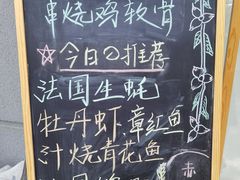 串烧鸡软骨
☆今日の推荐
法国生蚝
牡丹虾.章红鱼
汁烧青花鱼
赤